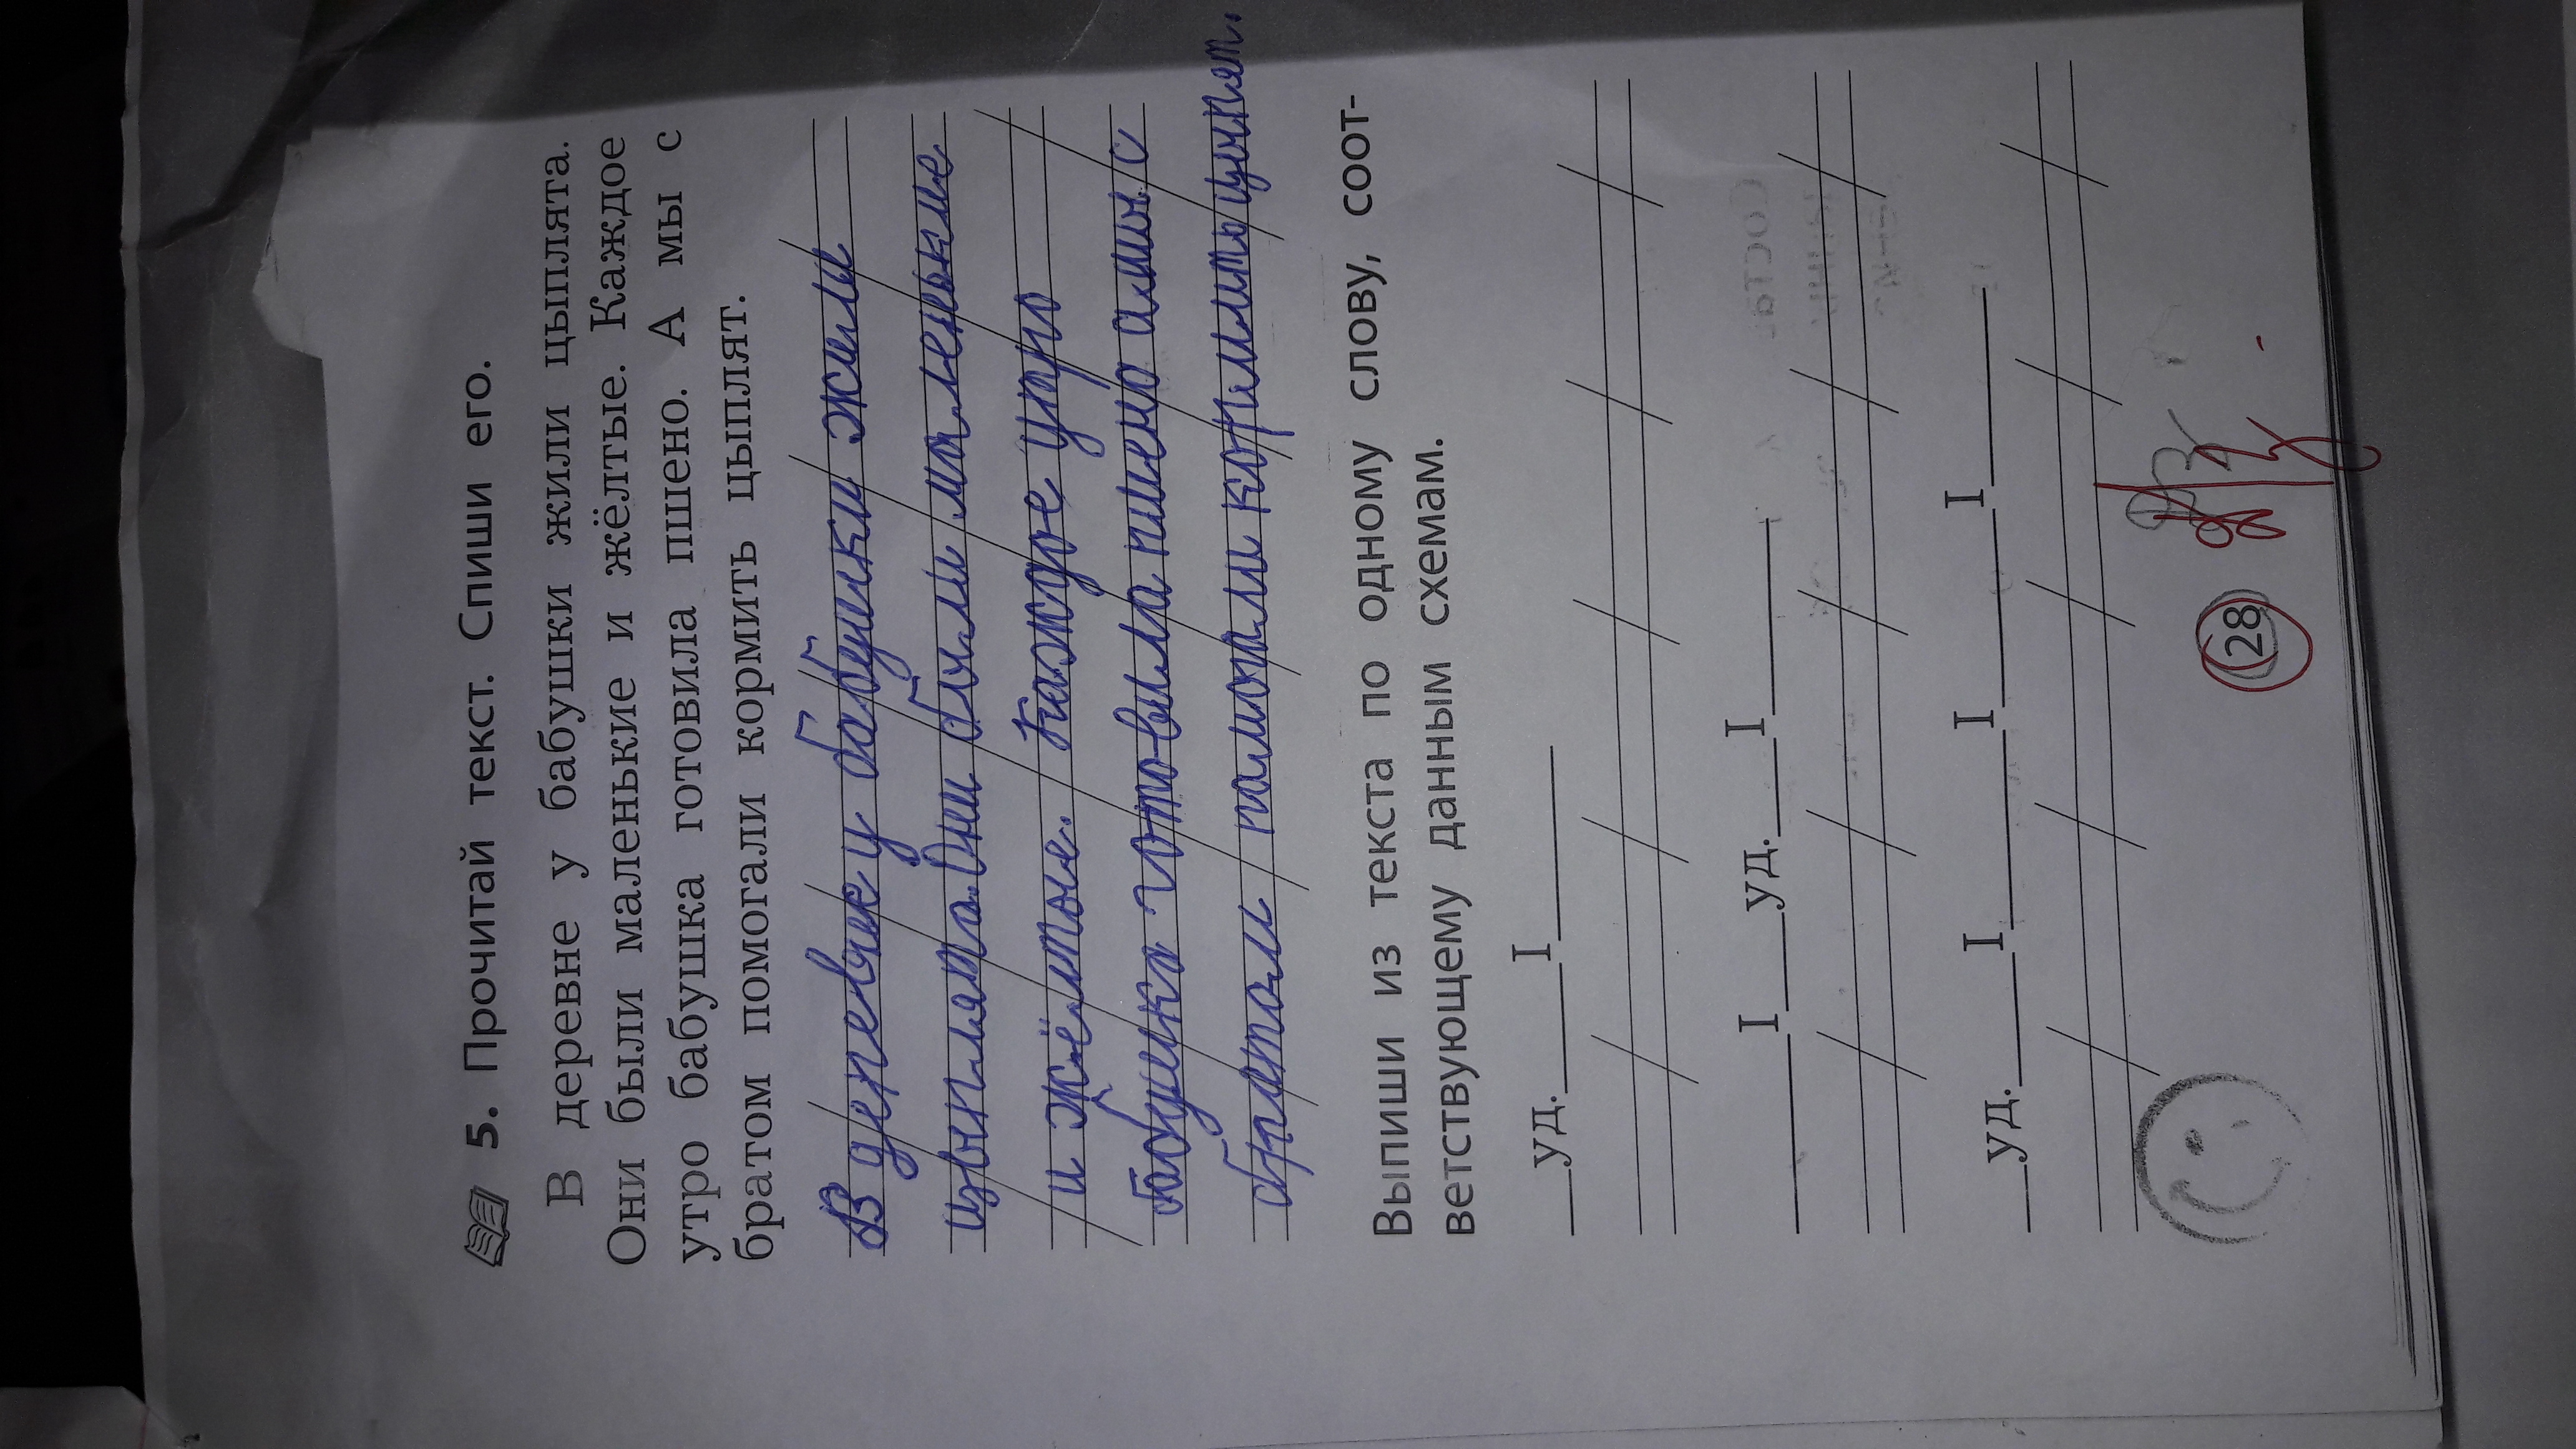 5. Прочитай текст. Спиши его.
В деревне у бабушки жили цыплята.
Они были маленькие и жёлтые. Каждое
утро бабушка готовила пшено. А мы с
братом помогали кормить цыплят.
В деревне у бабушки жили
цыплята. Они были маленькие
и жёлтые. Каждое утро
бабушка готовила пшено а мы с
братом помогали кормить цыплят.
Выпиши из текста по одному слову, соот-
ветствующему данным схемам.
уд. I
I уд. I
уд. I I I
28